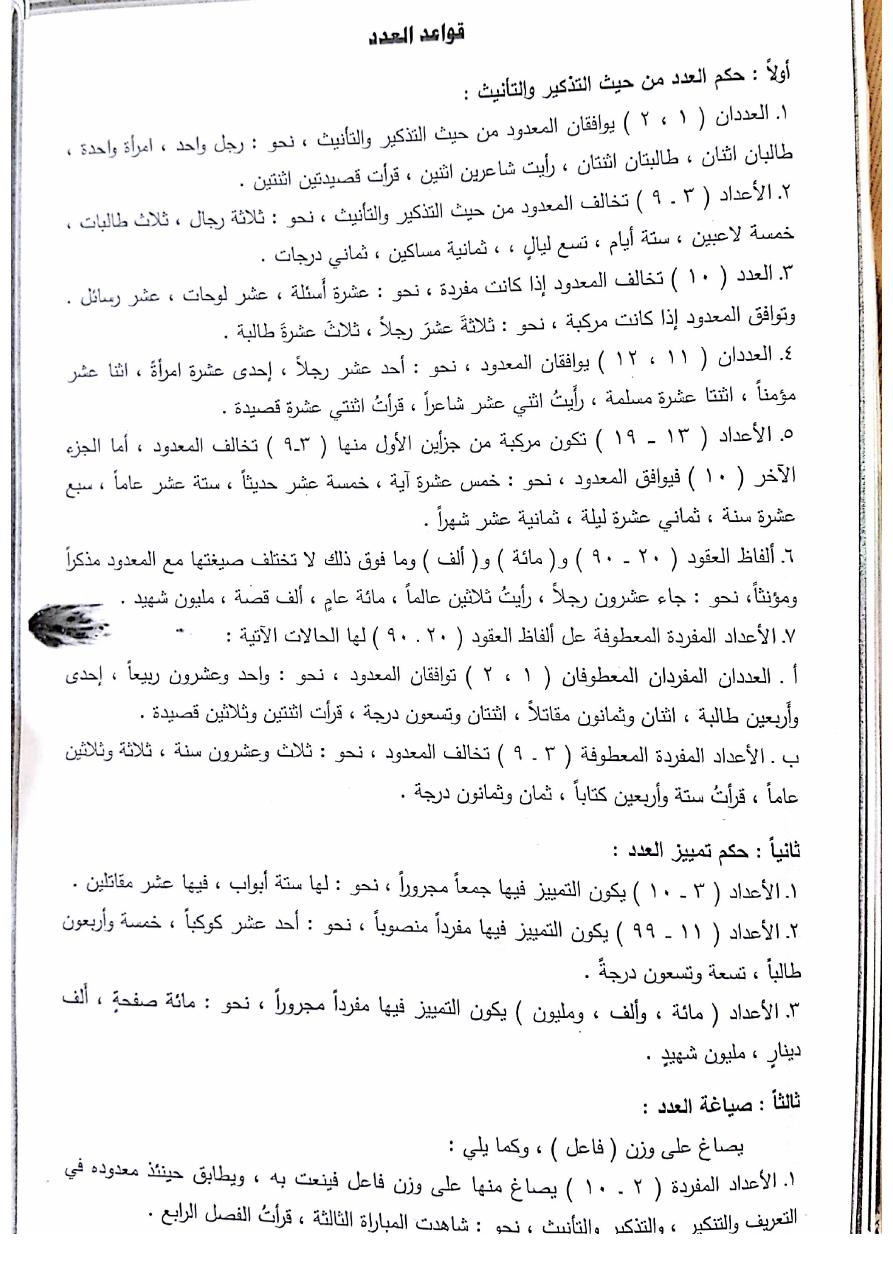 قواعد العدد
أولاً : حكم العدد من حيث التذكير والتأنيث :
١. العددان ( ١ ، ٢ ) يوافقان المعدود من حيث التذكير والتأنيث ، نحو : رجل واحد ، امرأة واحدة ،
طالبان اثنان ، طالبتان اثنتان ، رأيت شاعرين اثنين ، قرأت قصيدتين اثنتين .
٢. الأعداد ( ٣ ـ ٩ ) تخالف المعدود من حيث التذكير والتأنيث ، نحو : ثلاثة رجال ، ثلاث طالبات ،
خمسة لاعبين ، ستة أيام ، تسع ليالٍ ، ، ثمانية مساكين ، ثماني درجات .
٣. العدد ( ١٠ ) تخالف المعدود إذا كانت مفردة ، نحو : عشرة أسئلة ، عشر لوحات ، عشر رسائل .
وتوافق المعدود إذا كانت مركبة ، نحو : ثلاثةَ عشرَ رجلاً ، ثلاثَ عشرةَ طالبة .
٤. العددان ( ١١ ، ١٢ ) يوافقان المعدود ، نحو : أحد عشر رجلاً ، إحدى عشرة امرأةً ، اثنا عشر
مؤمناً ، اثنتا عشرة مسلمة ، رأيتُ اثني عشر شاعراً ، قرأتُ اثنتي عشرة قصيدة .
٥. الأعداد ( ١٣ ـ ١٩ ) تكون مركبة من جزأين الأول منها ( ٣ـ٩ ) تخالف المعدود ، أما الجزء
الآخر ( ١٠ ) فيوافق المعدود ، نحو : خمس عشرة آية ، خمسة عشر حديثاً ، ستة عشر عاماً ، سبع
عشرة سنة ، ثماني عشرة ليلة ، ثمانية عشر شهراً .
٦. ألفاظ العقود ( ٢٠ ـ ٩٠ ) و( مائة ) و( ألف ) وما فوق ذلك لا تختلف صيغتها مع المعدود مذكراً
ومؤنثاً، نحو : جاء عشرون رجلاً ، رأيتُ ثلاثين عالماً ، مائة عامٍ ، ألف قصة ، مليون شهيد .
٧. الأعداد المفردة المعطوفة عل ألفاظ العقود ( ٢٠ . ٩٠ ) لها الحالات الآتية :
أ . العددان المفردان المعطوفان ( ١ ، ٢ ) توافقان المعدود ، نحو : واحد وعشرون ربيعاً ، إحدى
وأربعين طالبة ، اثنان وثمانون مقاتلاً ، اثنتان وتسعون درجة ، قرأت اثنتين وثلاثين قصيدة .
ب . الأعداد المفردة المعطوفة ( ٣ ـ ٩ ) تخالف المعدود ، نحو : ثلاث وعشرون سنة ، ثلاثة وثلاثين
عاماً ، قرأتُ ستة وأربعين كتاباً ، ثمان وثمانون درجة .
ثانياً : حكم تمييز العدد :
١. الأعداد ( ٣ ـ ١٠ ) يكون التمييز فيها جمعاً مجروراً ، نحو : لها ستة أبواب ، فيها عشر مقاتلين .
٢. الأعداد ( ١١ ـ ٩٩ ) يكون التمييز فيها مفرداً منصوباً ، نحو : أحد عشر كوكباً ، خمسة وأربعون
طالباً ، تسعة وتسعون درجةً .
٣. الأعداد ( مائة ، وألف ، ومليون ) يكون التمييز فيها مفرداً مجروراً ، نحو : مائة صفحةٍ ، ألف
دينارٍ ، مليون شهيدٍ .
ثالثاً : صياغة العدد :
يصاغ على وزن ( فاعل ) ، وكما يلي :
١. الأعداد المفردة ( ٢ ـ ١٠ ) يصاغ منها على وزن فاعل فينعت به ، ويطابق حينئذ معدوده في
التعريف والتنكير ، والتذكير والتأنيث ، نحو : شاهدت المباراة الثالثة ، قرأتُ الفصل الرابع .